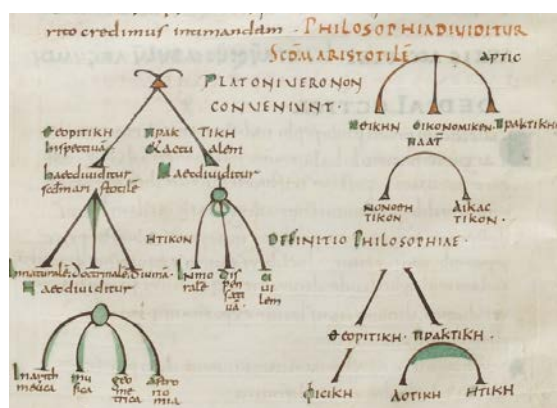 rito credimus intimandam. PHILOSOPHIADIVIDITUR
SCDMARISTOTILEN
ARTIC
PLATONIVERONON
CONVENIUNT.
ΘΕΟΡΙΤΙΚΗ ΠΡΑΚ ΤΙΚΗ
Inspectiuā &actu alem
haecdiuiditur Haecdiuiditur
scdm ari stotile
ΗΤΙΚΟΝ
Innaturale. Doctrinale. Diuinā.
Haecdiuiditur
Inmo rale
Dis pen sa ti uā.
ci ui lem
Inarith metica
mu sica
geo me trica
Astro no mia
ΗΘΙΚΗΝ ΟΙΚΟΝΟΜΙΚΕΝ. ΠΡΑΚΤΙΚΗΝ
ΠΛΑΤ
ΝΟΜΟΘΗ ΤΙΚΟΝ
ΔΙΚΑΣ ΤΙΚΟΝ.
DEFINITIO PHILOSOPHIAE.
ΘΕΟΡΙΤΙΚΗ. ΠΡΑΚΤΙΚΗ.
ΦΙCΙΚΗ ΛΟΤΙΚΗ ΗΤΙΚΗ